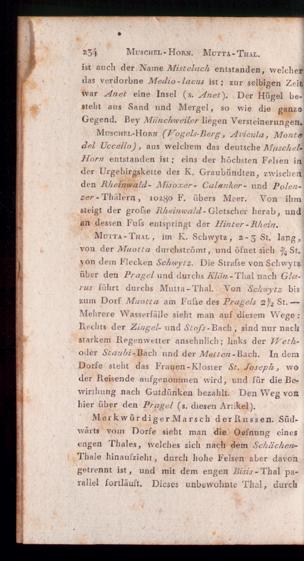 234 MUSCHEL-HORN. MUTTA-THAL.
ist auch der Name Mistelach entstanden, welcher
das verdorbne Medio-lacus ist; zur selbigen Zeit
war Anet eine Insel (s. Anet). Der Hügel be-
steht aus Sand und Mergel, so wie die ganze
Gegend. Bey Münchweiler liegen Versteinerungen.
MUSCHEL-HORN (Vogels-Berg, Avicula, Monte
del Uccello), aus welchem das deutsche Muschel-
Horn entstanden ist; eins der höchsten Felsen in
der Urgebirgskette des K. Graubündten, zwischen
den Rheinwald- Misoxer- Calanker- und Polen-
zer-Thälern, 10280 F. übers Meer. Von ihm
steigt der große Rheinwald-Gletscher herab, und
an dessen Fuß entspringt der Hinter-Rhein.
MUTTA-THAL, im K. Schwytz, 2-3 St. lang,
von der Muotta durchströmt, und öfnet sich ¾ St.
von dem Flecken Schwytz. Die Straße von Schwytz
über den Pragel und durchs Klön-Thal nach Gla-
rus führt durchs Mutta-Thal. Von Schwytz bis
zum Dorf Muotta am Fuße des Pragels 2½ St.—
Mehrere Wasserfälle sieht man auf diesem Wege:
Rechts der Zingel- und Stoß-Bach, sind nur nach
starkem Regenwetter ansehnlich; links der Weth-
oder Staubi-Bach und der Metten-Bach. In dem
Dorfe steht das Frauen-Kloster St. Joseph, wo
der Reisende aufgenommen wird, und für die Be-
wirthung nach Gutdünken bezahlt. Den Weg von
hier über den Pragel (s. diesen Artikel).
Merkwürdiger Marsch der Russen. Süd-
wärts vom Dorfe sieht man die Oefnung eines
engen Thales, welches sich nach dem Schächen-
Thale hinaufzieht, durch hohe Felsen aber davon
getrennt ist, und mit dem engen Bisis-Thal pa-
rallel fortläuft. Dieses unbewohnte Thal, durch